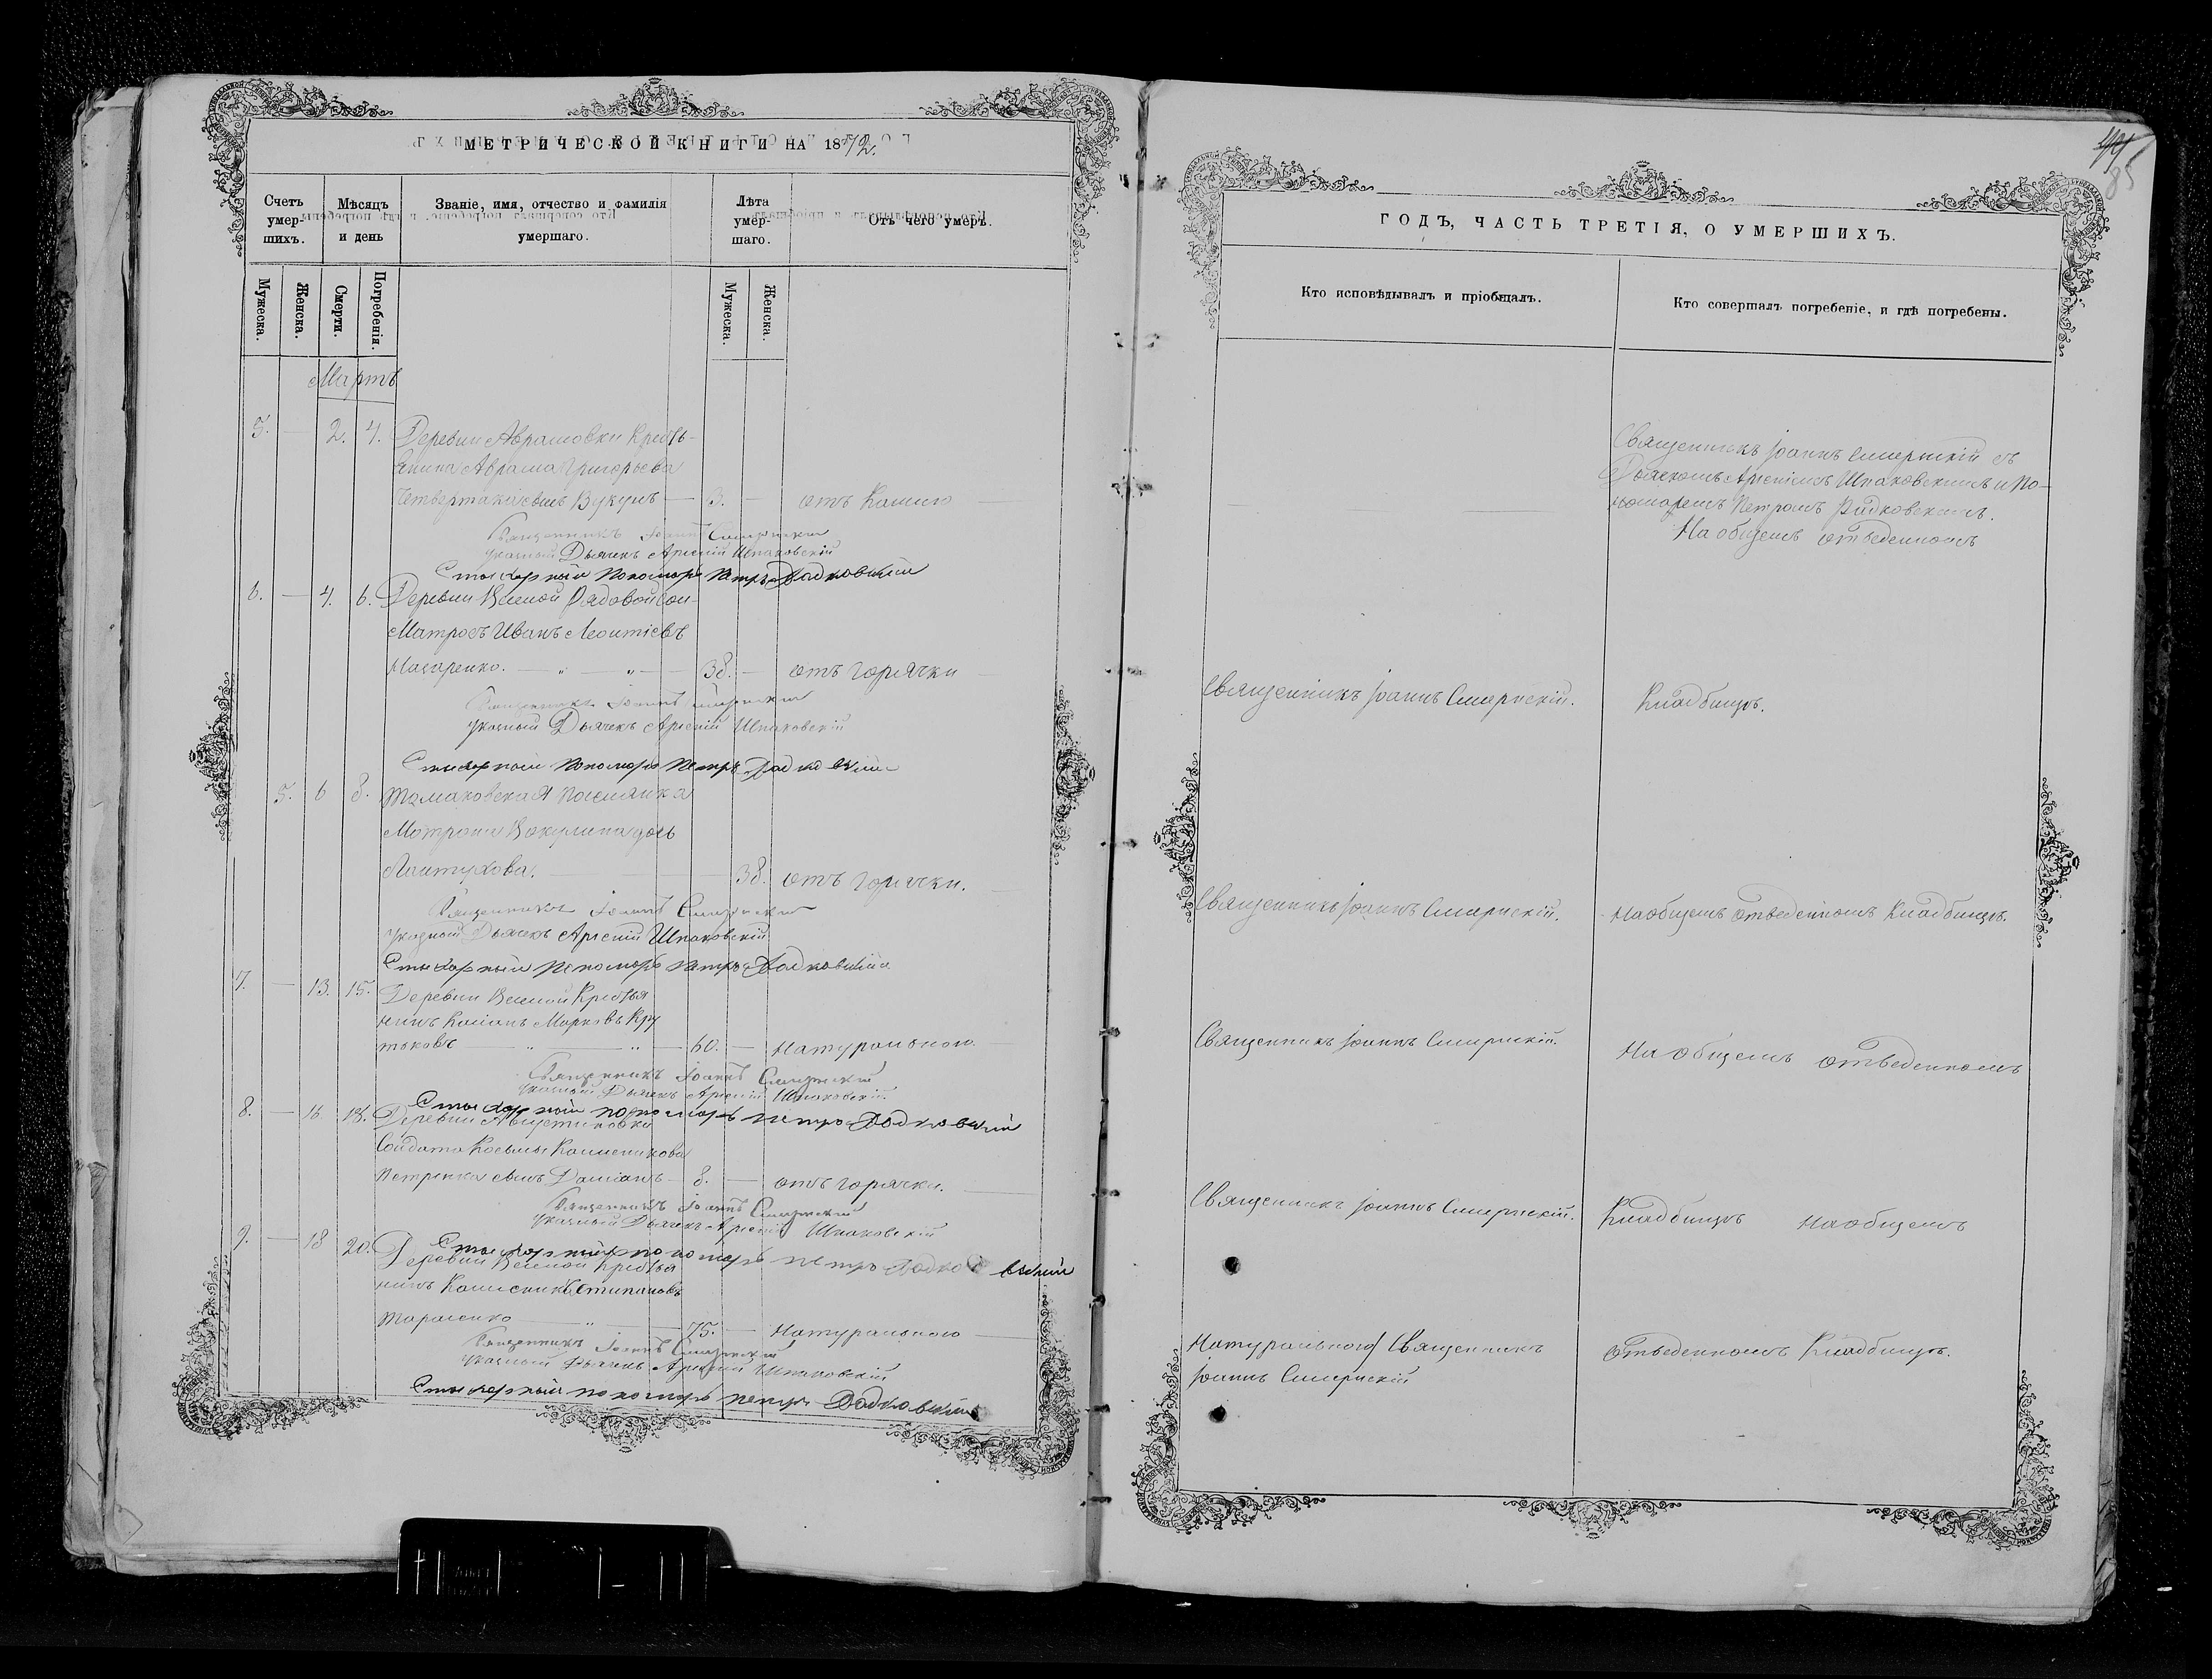 МЕТРИЧЕСКОЙ КНИГИ НА 1872.
Счетъ умер-шихъ.
Мѣсяцъ и день
Званіе, имя, отчество и фамилія умершаго.
Лѣта умер-шаго.
Отъ чего умеръ.
Мужеска.
Женска.
Смерти.
Погребенія.
Мужеска.
Женска.
Мартъ
5. — 2. 4. Деревни Аврамовки Кресть-
янина Аврама Григорьева
сынъ Вукулъ — 3. — отъ Кашлю
Священникъ Іоаннъ Смирнскій
указный Дьячекъ Арсеній Шпаковскій
Стихарный пономарь Петръ
6. — 4. 6. Деревни Веселой Рядовой
Матросъ Иванъ Леонтіевъ
Назаренко. — „ — „ — 38. — отъ горячки
Священникъ Іоаннъ Смирнскій
указный Дьячекъ Арсеній Шпаковскій
Стихарный пономарь Петръ
5. 6 8. Томаковская поселянка
Мотрона Вакулина дочь
Пастухова. — 38. отъ горячки.
Священникъ Іоаннъ Смирнскій
указный Дьячекъ Арсеній Шпаковскій
Стихарный пономарь Петръ
7. — 13. 15. Деревни Веселой Крестья
нинъ Касіанъ Марковъ Кру
тьковъ — „ — „ — 60. — Натуральною
Священникъ Іоаннъ Смирнскій
указный Дьячекъ Арсеній Шпаковскій
Стихарный пономарь Петръ
8. — 16 18. Деревни Августиновки
Солдата Косьмы
Петренка сынъ Даміанъ — 8. — отъ горячки.
Священникъ Іоаннъ Смирнскій
указный Дьячекъ Арсеній Шпаковскій
Стихарный пономарь Петръ
9. — 18 20. Деревни Веселой Крестья
нинъ Стипановъ
Тараненко — „ — 75. — Натуральною
Священникъ Іоаннъ Смирнскій
указный Дьячекъ Арсеній Шпаковскій
Стихарный пономарь Петръ
85
ГОДЪ, ЧАСТЬ ТРЕТІЯ, О УМЕРШИХЪ.
Кто исповѣдывалъ и пріобщалъ.
Кто совершалъ погребеніе, и гдѣ погребены.
Священникъ Іоаннъ Смирнскій съ
Дьячкомъ Арсеніемъ Шпаковскимъ и По-
номаремъ Петромъ
На общемъ отведенномъ
Священникъ Іоаннъ Смирнскій.
Кладбищѣ.
Священникъ Іоаннъ Смирнскій.
На общемъ отведенномъ Кладбищѣ.
Священникъ Іоаннъ Смирнскій.
На общемъ отведенномъ
Священникъ Іоаннъ Смирнскій.
Кладбищѣ На общемъ
Натуральною/ Священникъ
Іоаннъ Смирнскій
отведенномъ Кладбищѣ.